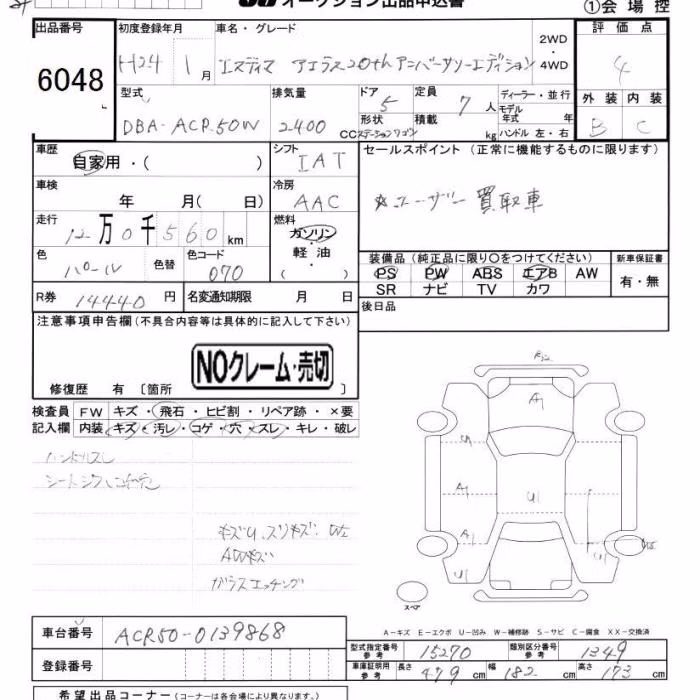 オークション出品申込書
①会場控
出品番号 初度登録年月 車名・グレード 評価点
6048
H24 1月 エスティマ アエラス20thアニバーサリーエディション 2WD・4WD 4
型式 排気量 ドア 5 定員 7人 ディーラー・並行 外装 内装
DBA-ACR50W 2400cc 形状 ステーションワゴン 積載 kg モデル年式 年 ハンドル 左・右 B C
車歴 自家用・( ) シフト IAT セールスポイント (正常に機能するものに限ります)
車検 年 月( 日) 冷房 AAC ユーザー買取車
走行 12万0千560km 燃料 ガソリン・軽油・( )
色 パール 色替 色コード 070
装備品(純正品に限り○をつけてください) 新車保証書
PS PW ABS エアB AW 有・無
SR ナビ TV カワ
R券 14440円 名変通知期限 月 日 後日品
注意事項申告欄(不具合内容等は具体的に記入して下さい)
NOクレーム・売切
修復歴 有 [箇所 ]
検査員 FW キズ・飛石・ヒビ割・リペア跡・×要
記入欄 内装 キズ・汚レ・コゲ・穴・スレ・キレ・破レ
ハンドルスレ
キズU、スリキズ、W2
AWキズ
ガラスエッチング
A1
A1
U1
A1
U1
スペア
A-キズ E-エクボ U-凹み W-補修跡 S-サビ C-腐食 XX-交換済
車台番号 ACR50-0139868
型式指定番号 参考 15270 類別区分番号 参考 1349
登録番号
車庫証明用 参考 長さ 479cm 幅 182cm 高さ 173cm
希望出品コーナー(コーナーは各会場により異なります。)